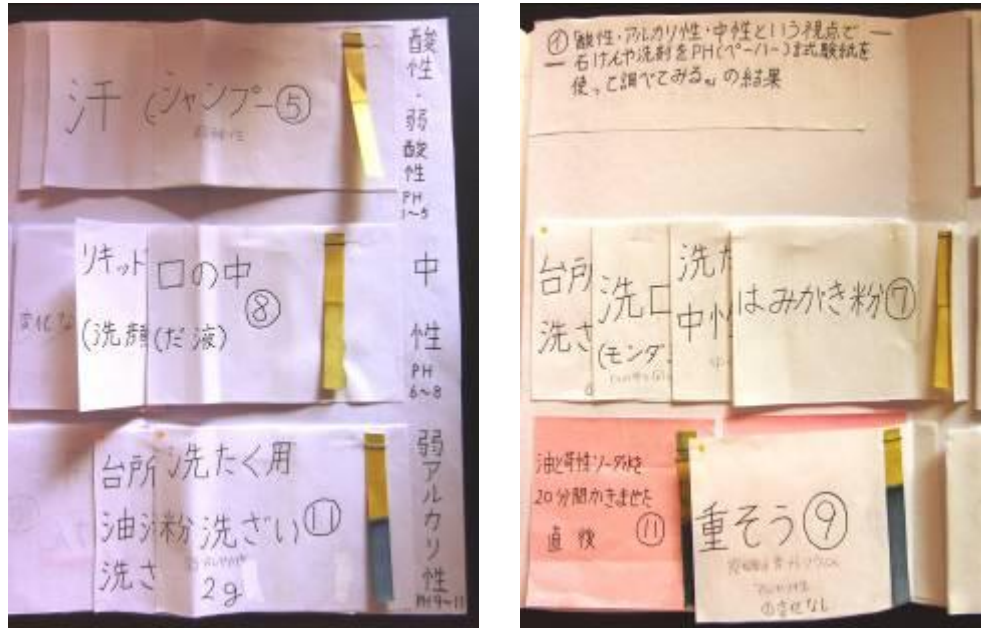 汗 (シャンプー⑤
酸性・弱酸性
PH
1~5
リキッド
(洗顔
口の中
⑧
(だ液)
中性
PH
6~8
台所
油汚
洗ざ
洗たく用
粉洗ざい⑪
2g
弱アルカリ性
PH9~11
① 「酸性・アルカリ性・中性という視点で
石けんや洗剤をPH(ペーハー)試験紙を
使って調べてみる。」の結果
台所
洗ざ
洗口
(モンダ
洗た
中性
はみがき粉⑦
油と苛性ソーダ水を
20分間かきまぜた
直後 ⑪
重そう⑨
の変化なし